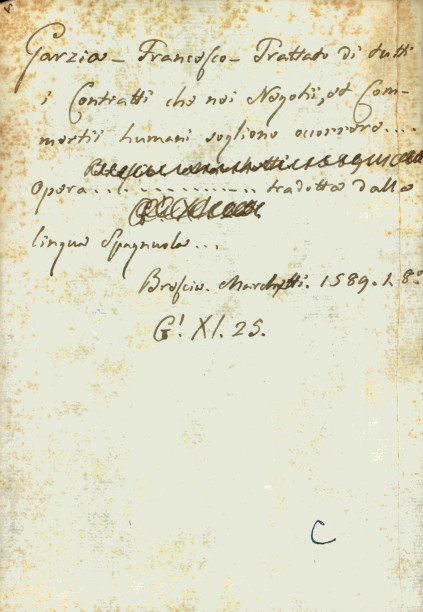 Garzia - Francesco - Trattato di tutti
i Contratti che nei Negotii, et Com-
mertii humani sogliono occorrere....
Opera............... tradotta dalla
lingua Spagnuola...
Brescia. Marchetti. 1589. 1. 8°
G!. XI. 25.
C